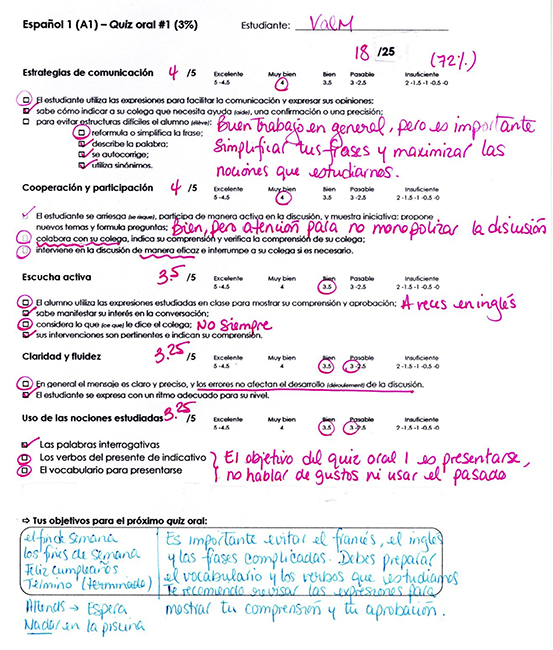 Español 1 (A1) – Quiz oral #1 (3%) Estudiante: ValM
18 /25 (72%)
Estrategias de comunicación 4 /5 Excelente Muy bien Bien Pasable Insuficiente
5 -4.5 4 3.5 3 -2.5 2 -1.5 -1 -0.5 -0
El estudiante utiliza las expresiones para facilitar la comunicación y expresar sus opiniones;
sabe cómo indicar a su colega que necesita ayuda (aide), una confirmación o una precisión;
para evitar estructuras difíciles el alumno (élève):
reformula o simplifica la frase;
describe la palabra;
se autocorrige;
utiliza sinónimos.
Buen trabajo en general, pero es importante
simplificar tus frases y maximizar las
nociones que estudiamos.
Cooperación y participación 4 /5 Excelente Muy bien Bien Pasable Insuficiente
5 -4.5 4 3.5 3 -2.5 2 -1.5 -1 -0.5 -0
El estudiante se arriesga (se risque), participa de manera activa en la discusión, y muestra iniciativa: propone
nuevos temas y formula preguntas; Bien, pero atención para no monopolizar la discusión
colabora con su colega, indica su comprensión y verifica la comprensión de su colega;
interviene en la discusión de manera eficaz e interrumpe a su colega si es necesario.
Escucha activa 3.5 /5 Excelente Muy bien Bien Pasable Insuficiente
5 -4.5 4 3.5 3 -2.5 2 -1.5 -1 -0.5 -0
El alumno utiliza las expresiones estudiadas en clase para mostrar su comprensión y aprobación; A veces en inglés
sabe manifestar su interés en la conversación;
considera lo que (ce que) le dice el colega; No siempre
sus intervenciones son pertinentes e indican su comprensión.
Claridad y fluidez 3.25 /5 Excelente Muy bien Bien Pasable Insuficiente
5 -4.5 4 3.5 3 -2.5 2 -1.5 -1 -0.5 -0
En general el mensaje es claro y preciso, y los errores no afectan el desarrollo (déroulement) de la discusión.
El estudiante se expresa con un ritmo adecuado para su nivel.
Uso de las nociones estudiadas 3.25 /5 Excelente Muy bien Bien Pasable Insuficiente
5 -4.5 4 3.5 3 -2.5 2 -1.5 -1 -0.5 -0
Las palabras interrogativas
Los verbos del presente de indicativo
El vocabulario para presentarse
El objetivo del quiz oral 1 es presentarse,
no hablar de gustos ni usar el pasado
⇨ Tus objetivos para el próximo quiz oral:
el fin de semana
los fines de semana
Feliz cumpleaños
Término (terminado)
Attends → Espera
Nadar en la piscina
Es importante evitar el francés, el inglés
y las frases complicadas. Debes preparar
el vocabulario y los verbos que estudiamos
Te recomiendo revisar las expresiones para
mostrar tu comprensión y tu aprobación.